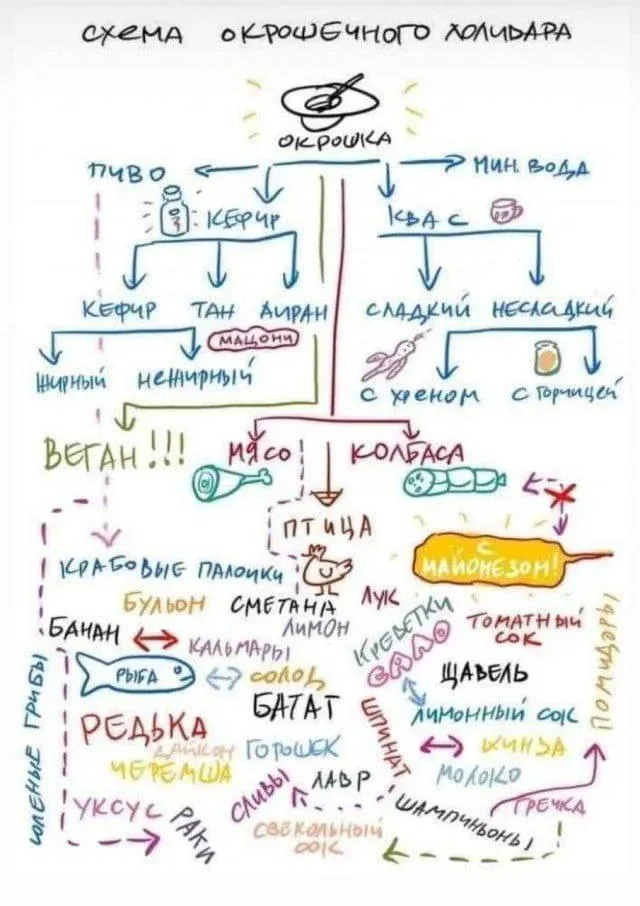 СХЕМА ОКРОШЕЧНОГО ХОЛИВАРА
ОКРОШКА
ПИВО
МИН. ВОДА
КЕФИР
КВАС
КЕФИР ТАН АИРАН
СЛАДКИЙ НЕСЛАДКИЙ
МАЦОНИ
ЖИРНЫЙ НЕЖИРНЫЙ
С ХРЕНОМ С ГОРЧИЦЕЙ
ВЕГАН!!!
МЯСО
КОЛБАСА
ПТИЦА
С МАЙОНЕЗОМ!
КРАБОВЫЕ ПАЛОЧКИ
БУЛЬОН
СМЕТАНА
ЛУК
КРЕВЕТКИ
ТОМАТНЫЙ СОК
БАНАН
КАЛЬМАРЫ
ЛИМОН
САЛО
ПОМИДОРЫ
РЫБА
СОЛОД
ЩАВЕЛЬ
БАТАТ
ШПИНАТ
ЛИМОННЫЙ СОК
РЕДЬКА
ДАЙКОН
ГОРОШЕК
КИНЗА
ЧЕРЕМША
СЛИВЫ
ЛАВР
МОЛОКО
СОЛЕНЫЕ ГРИБЫ
УКСУС
РАКИ
СВЕКОЛЬНЫЙ СОК
ШАМПИНЬОНЫ
ГРЕЧКА